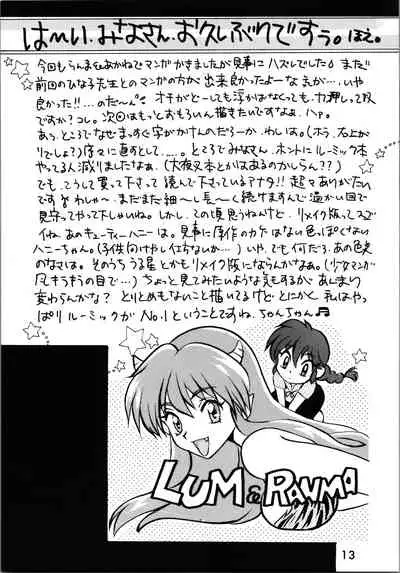 は〜い、みなさん、お久しぶりですぅ。ほえ。
今回もらんまとあかねでマンガかきましたが見事にハズレでした まだ
前回のひな子先生とのマンガの方が出来良かったよーな気が…いや
良かった!!…のだ〜ん オチがどーしても浮かばなくっても、力押しって奴
ですか？コレ。次回はもっとおもろいん描きたいですなよ。ハァ。
あぅ、ところでなぜますっすぐ字がかけんのだろーか、わしは。(ホラ、右上がり
でしょ？)序々に直すとして……。ところでみなさん、ホントにルーミック本
やってる人減りましたなぁ(犬夜叉本とかはあるのかしらん??)
でも、こうして買って下さって読んで下さっているアナタ!!超々ありがたい
です わしゃ〜、まだまだ細〜く長〜く続けますんで温かい目で
見守ってやって下しゃいね。しかし、この頃思うねんけど、リメイク版ってスゴ
イね。あのキューティーハニーは。見事に原作のかほはない色っぽくない
ハニーちゃん。(子供向けかし仕方ないか…)いや、でも何だろ、あの色気
のなさは。そのうち うる星とかもリメイク版にならんかなぁ。(少女マンガ
風きらきらの目で…)ちょっと見てみたいような気もするが、あんまり
変わらんかな？とりとめもないこと描いてるけど とにかく、私はやっ
ぱり ルーミックが No.1ということですね。ちゃんちゃん♫
LUM & RANMA
13